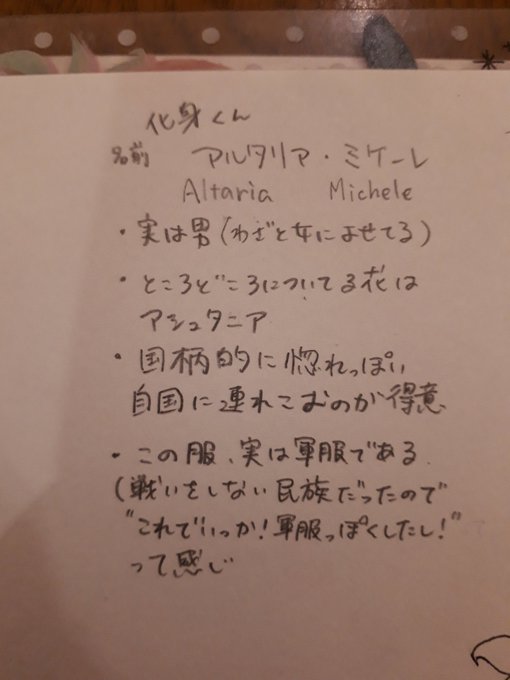 化身くん
名前 アルタリア・ミケーレ
Altaria Michele
・実は男(わざと女によせてる)
・ところどころについてる花は
アシュタニア
・国柄的に惚れっぽい
自国に連れこむのが得意
・この服、実は軍服である。
(戦いをしない民族だったので
"これでいっか!軍服っぽくしたし!"
って感じ